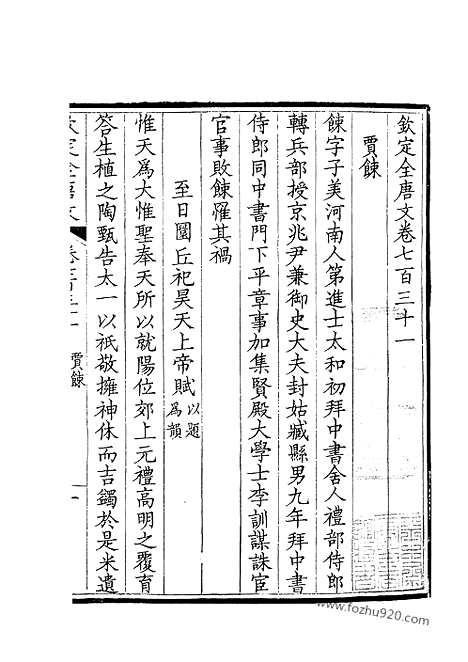 欽定全唐文卷七百三十一
賈餗
餗字子美河南人第進士太和初拜中書舍人禮部侍郎
轉兵部授京兆尹兼御史大夫封姑臧縣男九年拜中書
侍郎同中書門下平章事加集賢殿大學士李訓謀誅宦
官事敗餗罹其禍
至日圜丘祀昊天上帝賦以題為韻
惟天為大惟聖奉天所以就陽位郊上元禮高明之覆育
答生植之陶甄告太一以祇敬擁神休而吉蠲於是米遺
欽定全唐文 賈餗 一
www.fozhu920.com